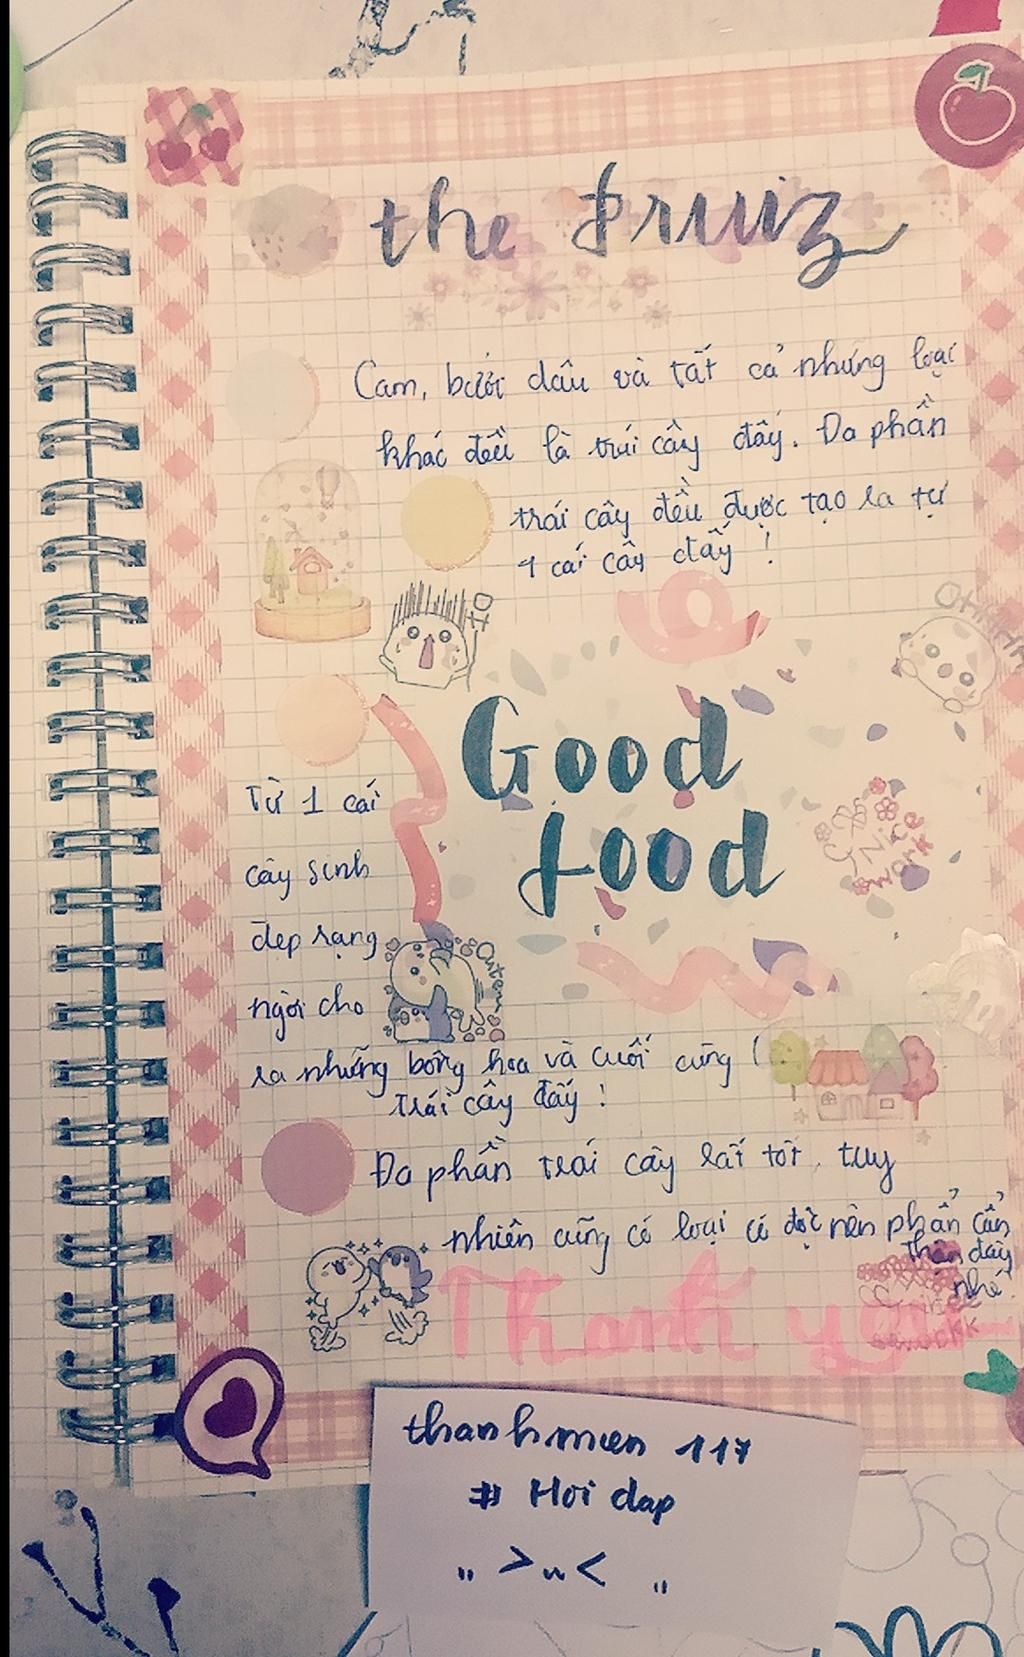 the fruiz
Cam, bưởi dâu và tất cả những loại
khác đều là trái cây đấy. Đa phần
trái cây đều được tạo ra từ
1 cái cây đấy !
OI
Good
food
Nice
work
Từ 1 cái
cây sinh
đẹp rạng
ngời cho
Cute
ra những bông hoa và cuối cùng !
trái cây đấy !
Đa phần trái cây rất tốt, tuy
nhiên cũng có loại có độc nên phải cẩn
thận đấy
nhé!
Thank you
thanhmien 117
# Hoi dap
,, >_< ,,